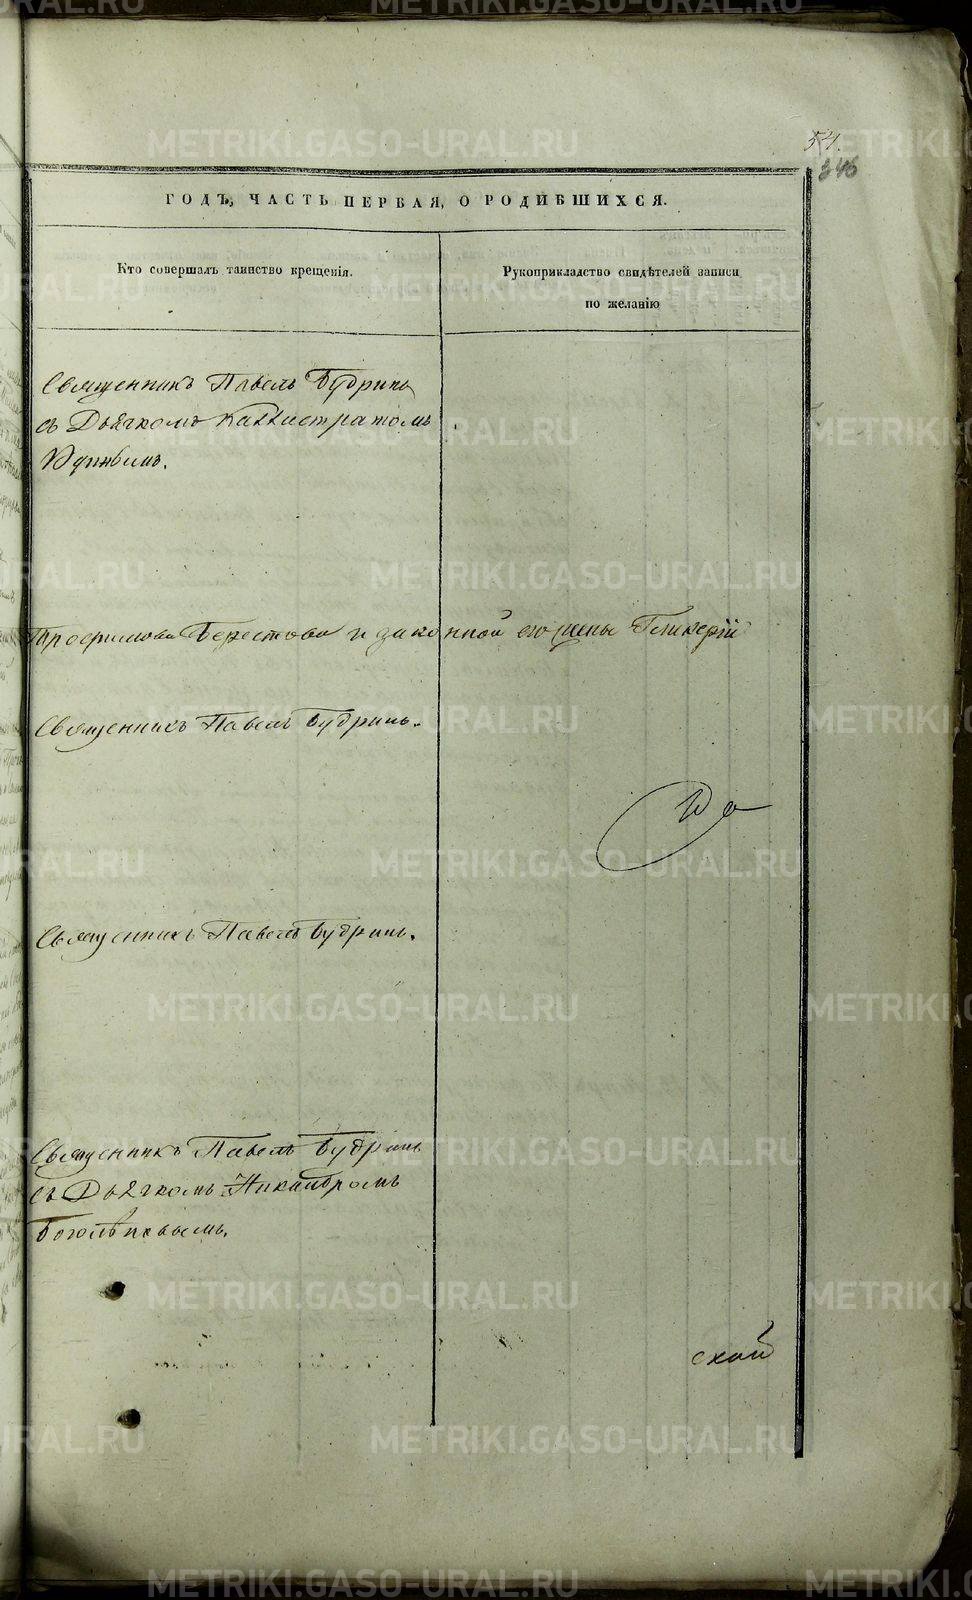 54.
346
ГОДЪ, ЧАСТЬ ПЕРВАЯ, О РОДИВШИХСЯ.
Кто совершалъ таинство крещенія.
Рукоприкладство свидѣтелей записи
по желанію
Священникъ Павелъ Будринъ
съ Дьячкомъ Каллистратомъ
Трофимова Берестова и законной его жены Гликеріи
Священникъ Павелъ Будринъ.
Священникъ Павелъ Будринъ.
Священникъ Павелъ Будринъ
съ Дьячкомъ Никандромъ
Боголѣповымъ.
ской
METRIKI.GASO-URAL.RU